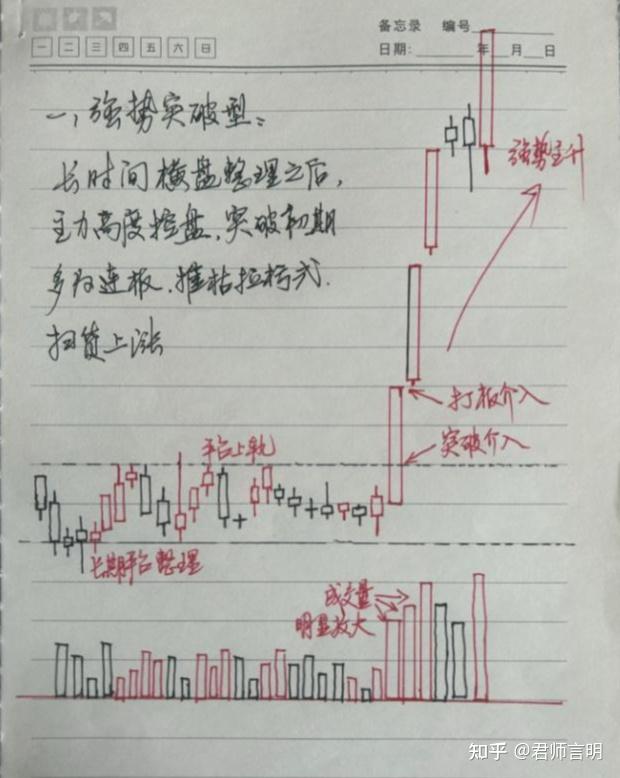 备忘录 编号
一 二 三 四 五 六 日
日期: 年 月 日
一、强势突破型:
长时间横盘整理之后,
主力高度控盘,突破初期
多为连板,摧枯拉朽式
扫货上涨
强势主升
打板介入
突破介入
平台上轨
长期平台整理
成交量
明显放大
知乎 @君师言明